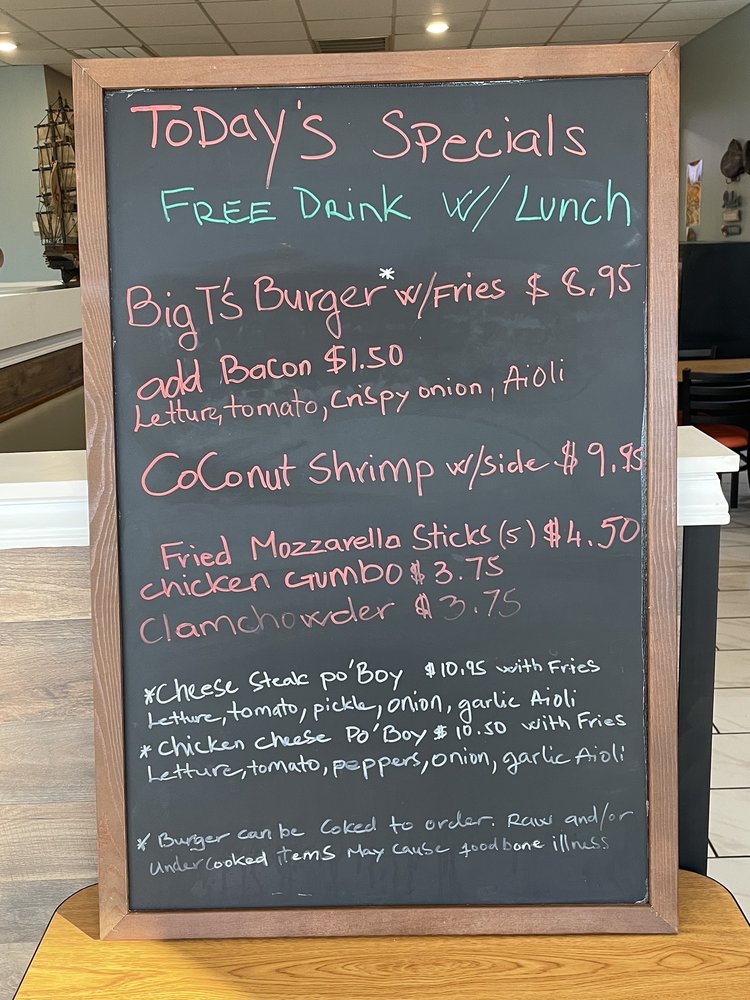 Today's Specials
Free Drink w/ Lunch
Big T's Burger* w/Fries $8.95
add Bacon $1.50
Letture, tomato, Crispy onion, Aioli
Coconut Shrimp w/side $9.95
Fried Mozzarella Sticks (5) $4.50
chicken Gumbo $3.75
Clamchowder $3.75
*Cheese Steak po'Boy $10.95 with Fries
Letture, tomato, pickle, onion, garlic Aioli
*chicken cheese Po'Boy $10.50 with Fries
Letture, tomato, peppers, onion, garlic Aioli
* Burger can be Coked to order. Raw and/or
undercooked items May cause foodbone illness